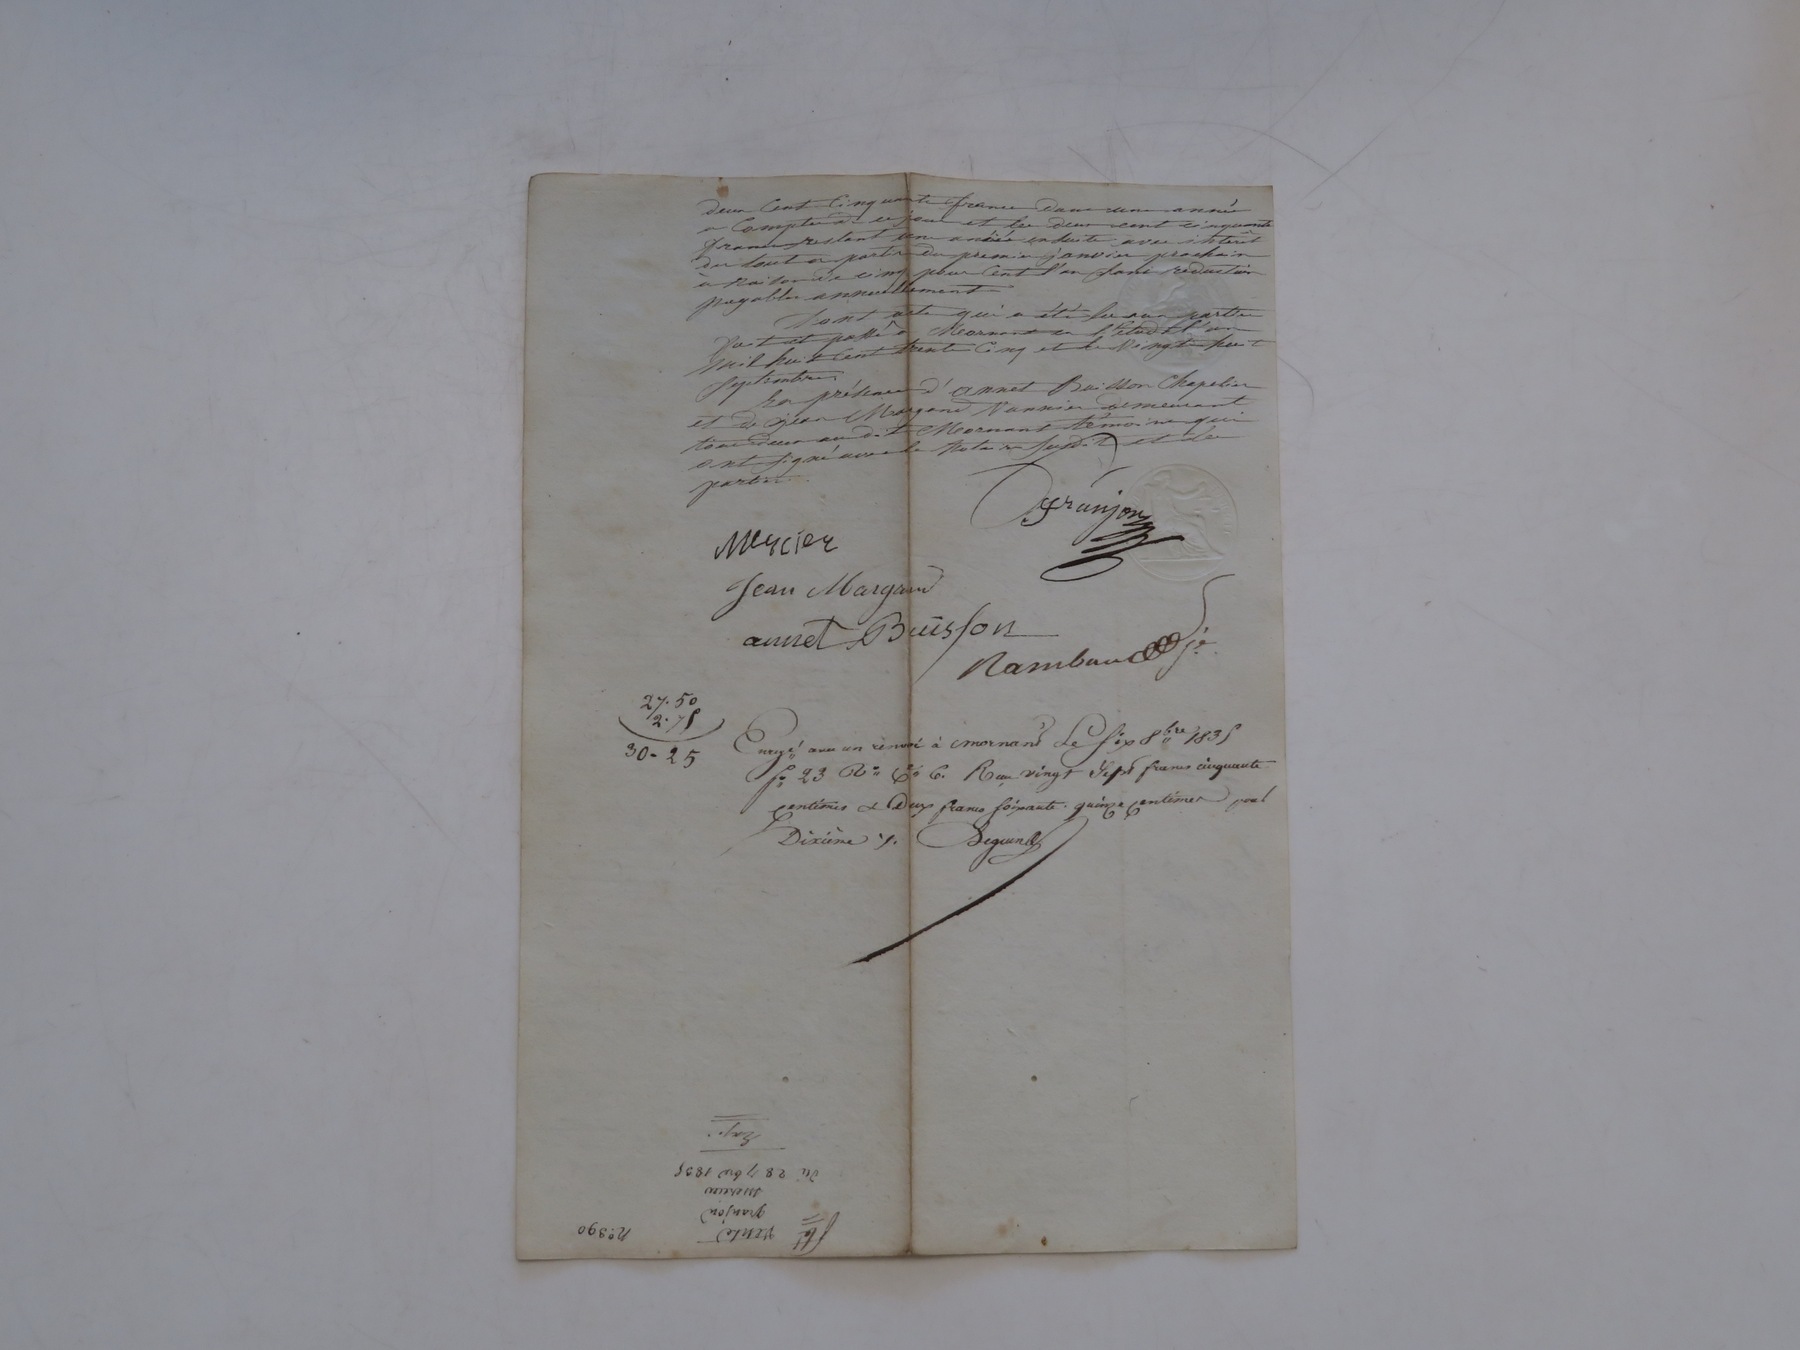 deux Cent Cinquante francs dans une année
a Compter de ce jour et les deux cent cinquante
francs restant une année ensuite avec intérêt
du tout a partir du premier janvier prochain
à raison de cinq pour Cent l'an sans réduction
payables annuellement
Dont acte qui a été lu aux parties
fait et passé a Mornant en l'étude l'an
Mil huit Cent trente Cinq et le Vingt huit
Septembre
En présence d'annet Buisson Chapelier
et de Jean Margand Vannier demeurant
tous deux au dit Mornant témoins qui
ont signé avec le Notaire susdit et les
parties.
granjon
Mercier
Jean Margand
annet Buisson
Rambaud
27.50
2.75
30-25
Enregé avec un renvoi à mornant Le six 8bre 1835
fo 23 Ro Co 6. Reçu vingt sept francs cinquante
centimes & Deux francs soixante quinze centimes pour
Dixième
du 28 7bre 1835
mercier
granjon
vente
No 390